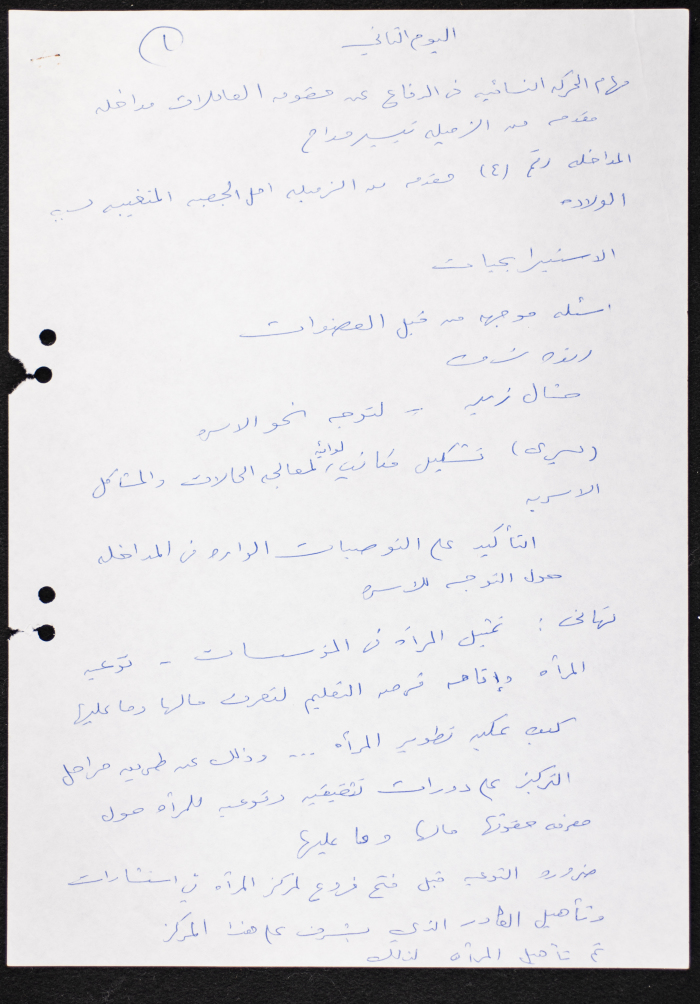 اليوم الثاني
(١)
مهام الحركه النسائيه في الدفاع عن حقوق العاملات مداخله
مقدمه من الزميله تيسير مداح
المداخله رقم (٤) مقدمه من الزميله امل الجعبه المتغيبه بسبب
الولاده
الاستيراتيجيات
اسئله موجهه من قبل العضوات
رنده
منال زيد – لتوجه نحو الاسره
(يسرى) تشكيل لوائيه لمعالجه الحالات والمشاكل
الاسريه
التأكيد على التوصيات الوارده في المداخله
حول التوجه للاسره
تهاني : تمثيل المرأه في المؤسسات – توعيه
المرأه وإتاحه فرصه التعليم لتعرف مالها وما عليها
كيف يمكن تطوير المرأه ... وذلك عن طريق مراحل
التركيز على دورات تثقيفيه وتوعيه للمرأه حول
معرفه حقوقها مالها وما عليها
ضروره التوعيه قبل فتح فروع لمركز المرأه في استشارات
وتأهيل الكادر الذي يشرف على هذا المركز
ثم تأهيل المرأه لذلك